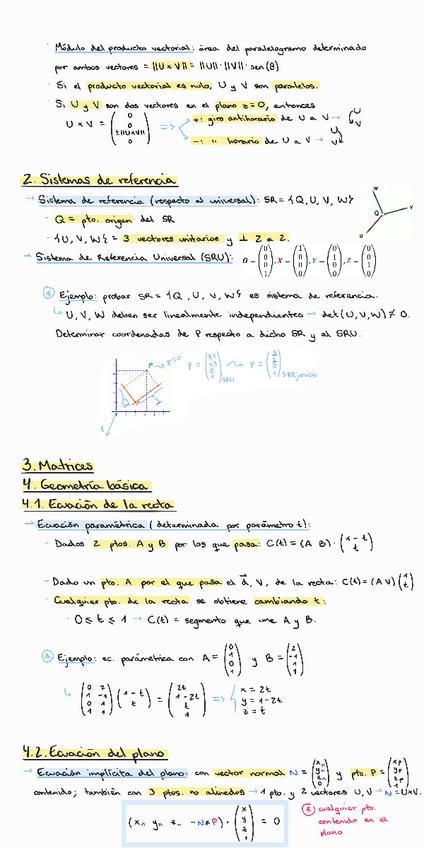 · Módulo del producto vectorial: área del paralelogramo determinado
por ambos vectores = ||U×V|| = ||U||·||V||·sen(θ)
· Si el producto vectorial es nulo, U y V son paralelos.
· Si U y V son dos vectores en el plano z=0, entonces
U × V = (0 0 ±||U×V|| 0) => +: giro antihorario de U a V → U V
-: " horario de U a V → U V
2. Sistemas de referencia
→ Sistema de referencia (respecto al universal): SR = {Q, U, V, W}
- Q = pto. origen del SR
- {U, V, W} = 3 vectores unitarios y ⊥ 2 a 2.
→ Sistema de Referencia Universal (SRU): O - (0 0 0 1), X - (1 0 0 0), Y - (0 1 0 0), Z - (0 0 1 0)
* Ejemplo: probar SR = {Q, U, V, W} es sistema de referencia.
↳ U, V, W deben ser linealmente independientes → det(U,V,W) ≠ 0.
Determinar coordenadas de P respecto a dicho SR y al SRU.
3. Matrices
4. Geometría básica
4.1. Ecuación de la recta
→ Ecuación paramétrica (determinada por parámetro t):
- Dados 2 ptos. A y B por los que pasa: C(t) = (A B) · (1-t t)
- Dado un pto. A por el que pasa el d, V, de la recta: C(t) = (A V) (1 t)
- Cualquier pto. de la recta se obtiene cambiando t:
· 0 ≤ t ≤ 1 → C(t) = segmento que une A y B.
* Ejemplo: ec. paramétrica con A = (0 1 0 1) y B = (2 -1 1 1)
↳ (0 2 1 -1 0 1 1 1) (1-t t) = (2t 1-2t t 1) => x = 2t
y = 1-2t
z = t
4.2. Ecuación del plano
→ Ecuación implícita del plano: con vector normal N = (xn yn zn 0) y pto. P = (xp yp zp 1)
contenido; también con 3 ptos. no alineados → 1 pto. y 2 vectores U, V → N = U×V.
(xn yn zn -N*P) · (x y z 1) = 0
* cualquier pto.
contenido en el
plano